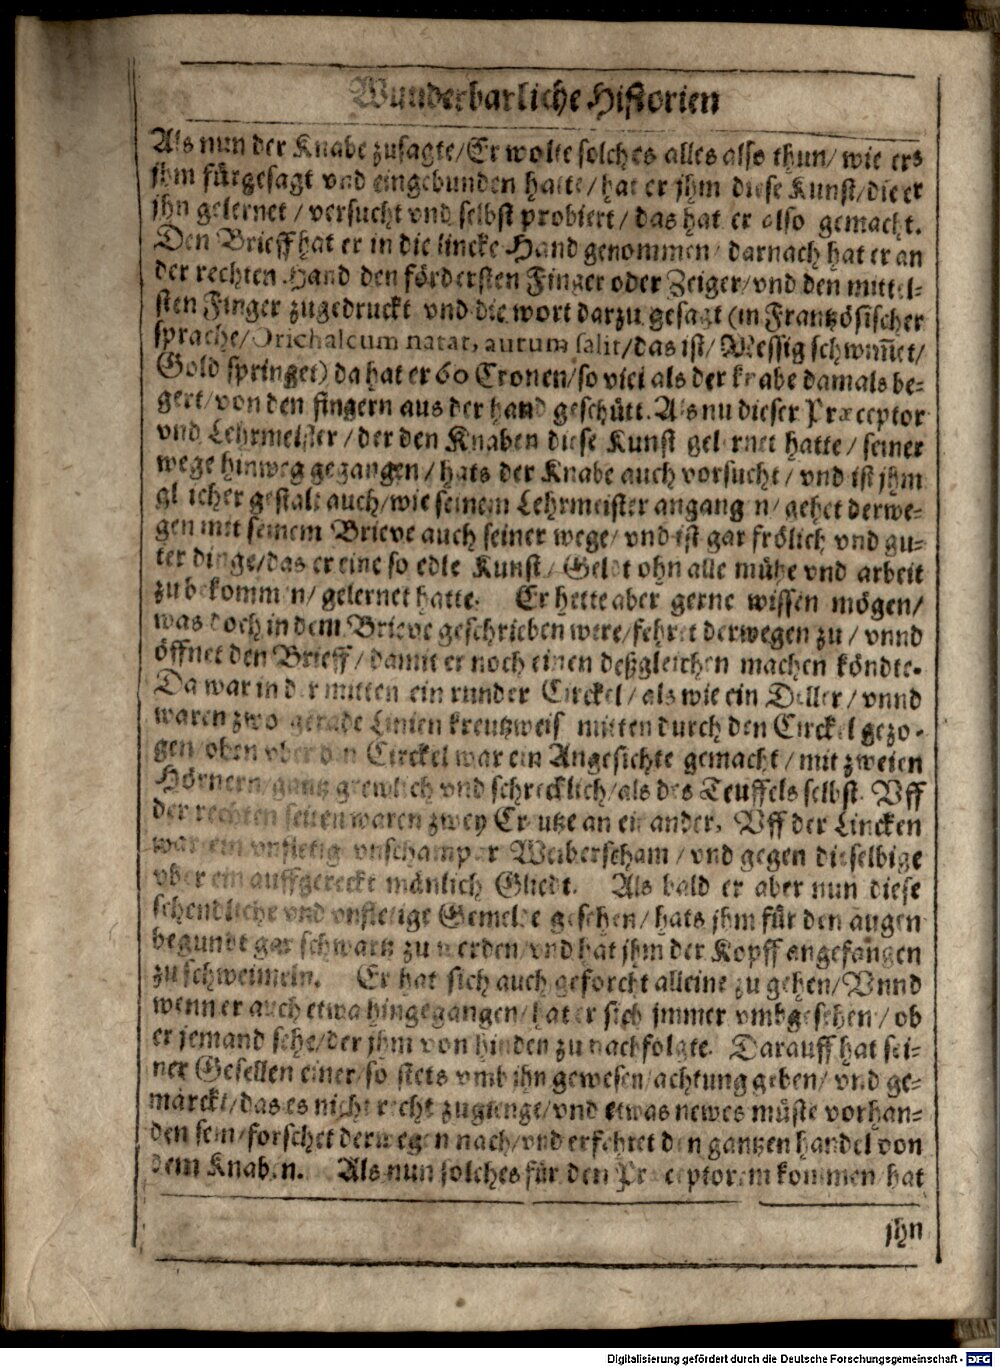 Wunderbarliche Historien
Als nun der Knabe zusagte/Er wolte solches alles also thun/ wie ers
jhm fürgesagt vnd eingebunden hatte/ hat er jhm diese Kunst/die er
jhn gelernet / versucht vnd selbst probiert / das hat er also gemacht.
Den Brieff hat er in die lincke Hand genommen/ darnach hat er an
der rechten Hand den fördersten Finger oder Zeiger/vnd den mittel-
sten Finger zugedruckt vnd die wort darzu gesagt (in Frantzösischer
sprache/Orichalcum natat, aurum salit/das ist/ Messig schwim̃et/
Gold springet) da hat er 60 Cronen/so viel als der knabe damals be-
gert/von den fingern aus der hand geschütt. Als nu dieser Præceptor
vnd Lehrmeister / der den Knaben diese Kunst gelernet hatte / seiner
wege hinweg gegangen / hats der Knabe auch vorsucht / vnd ist jhm
gleicher gestalt auch/wie seinem Lehrmeister angangen/ gehet derwe-
gen mit seinem Brieve auch seiner wege/ vnd ist gar frölich vnd gu-
ter dinge/das er eine so edle Kunst/ Geldt ohn alle mühe vnd arbeit
zu bekommen/ gelernet hatte. Er hette aber gerne wissen mögen/
was doch in dem Brieve geschrieben were/fehret derwegen zu / vnnd
öffnet den Brieff/ damit er noch einen deßgleichen machen köndte.
Da war in der mitten ein runder Circkel / als wie ein Deller / vnnd
waren zwo gerade Linien kreutzweis mitten durch den Circkel gezo-
gen/oben vber den Circkel war ein Angesichte gemacht / mit zweien
Hörnern/gantz grewlich vnd schrecklich/als des Teuffels selbst. Vff
der rechten seiten waren zwey Creutze an einander, Vff der Lincken
war ein vnfletig vnschamper Weiberscham / vnd gegen dieselbige
vber ein auffgereckt mänlich Gliedt. Als bald er aber nun diese
schendliche vnd vnfletige Gemelde gesehen/ hats jhm für den augen
begundt gar schwartz zu werden/vnd hat jhm der Kopff angefangen
zu schweimeln. Er hat sich auch geforcht alleine zu gehen/ Vnnd
wenn er auch etwa hingegangen/hat er sich jmmer vmbgesehen / ob
er jemand sehe/der jhm von hinden zu nachfolgte. Darauff hat sei-
ner Gesellen einer/so stets vmb jhn gewesen/achtung geben/ vnd ge-
marckt/das es nicht recht zugienge/vnd etwas newes müste vorhan-
den sein/forschet derwegen nach/vnd erfehret den gantzen handel von
dem Knaben. Als nun solches für den Præceptorem kommen hat
jhn
Digitalisierung gefördert durch die Deutsche Forschungsgemeinschaft - DFG